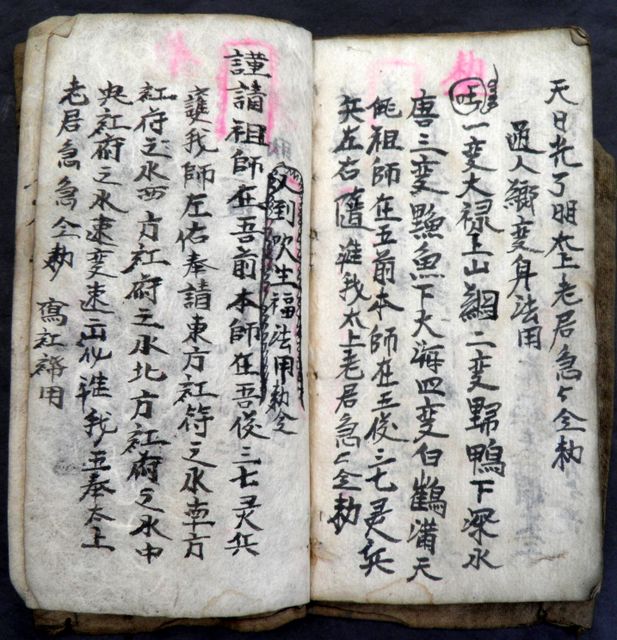 天日光了明太上老居急〻仝勑
過人鄉变身法用
一变大禄上山翻二变野鴨下深水
唐三变魚下大海四变白鶴满天
祖師在五前本師在五俊三七灵兵
兵左右隨進我太上老居急〻仝勑
又到吹生福法用勑令
謹請祖師在吾前本師在吾俊三七灵兵
護我師左佑奉請東方紅符之水南方
紅府之水西方紅府之水北方紅府之水中
央紅府之水速变速化我五奉太上
老居急急仝勑 寫紅用